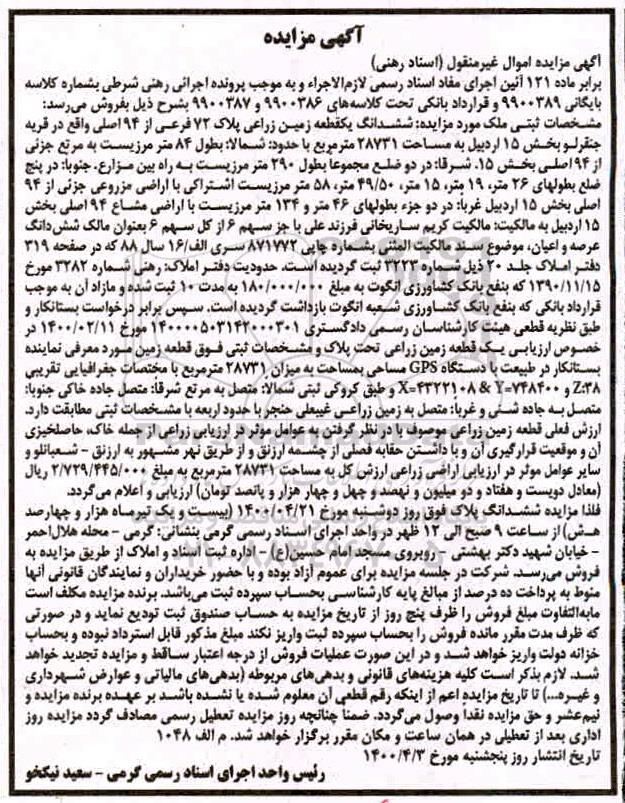 آگهی مزایده
آگهی مزایده اموال غیرمنقول (اسناد رهنی)
برابر ماده ۱۲۱ آئین اجرای مفاد اسناد رسمی لازم‌الاجراء و به موجب پرونده اجرائی رهنی شرطی بشماره کلاسه
بایگانی ۹۹۰۰۳۸۹ و قرارداد بانکی تحت کلاسه‌های ۹۹۰۰۳۸۶ و ۹۹۰۰۳۸۷ بشرح ذیل بفروش می‌رسد:
مشخصات ثبتی ملک مورد مزایده: ششدانگ یکقطعه زمین زراعی پلاک ۷۲ فرعی از ۹۴ اصلی واقع در قریه
جنقرلو بخش ۱۵ اردبیل به مساحت ۲۸۷۳۱ مترمربع با حدود: شمالا: بطول ۸۴ متر مرزیست به مرتع جزئی
از ۹۴ اصلی بخش ۱۵. شرقا: در دو ضلع مجموعا بطول ۲۹۰ متر مرزیست به راه بین مزارع. جنوبا: در پنج
ضلع بطولهای ۲۶ متر، ۱۹ متر، ۱۵ متر، ۴۹/۵۰ متر، ۵۸ متر مرزیست اشتراکی با اراضی مزروعی جزئی از ۹۴
اصلی بخش ۱۵ اردبیل غربا: در دو جزء بطولهای ۴۶ متر و ۱۳۴ متر مرزیست با اراضی مشاع ۹۴ اصلی بخش
۱۵ اردبیل به مالکیت: مالکیت کریم ساریخانی فرزند علی با جز سهم ۶ از کل سهم ۶ بعنوان مالک شش‌دانگ
عرصه و اعیان، موضوع سند مالکیت المثنی بشماره چاپی ۸۷۱۷۷۲ سری الف/۱۶ سال ۸۸ که در صفحه ۳۱۹
دفتر املاک جلد ۲۰ ذیل شماره ۳۲۲۳ ثبت گردیده است. حدودیت دفتر املاک: رهنی شماره ۳۲۸۲ مورخ
۱۳۹۰/۱۱/۱۵ که بنفع بانک کشاورزی انگوت به مبلغ ۱۸۰/۰۰۰/۰۰۰ به مدت ۱۰ ثبت شده و مازاد آن به موجب
قرارداد بانکی که بنفع بانک کشاورزی شعبه انگوت بازداشت گردیده است. سپس برابر درخواست بستانکار و
طبق نظریه قطعی هیئت کارشناسان رسمی دادگستری ۱۴۰۰۰۰۵۰۳۱۴۲۰۰۰۳۰۱ مورخ ۱۴۰۰/۰۲/۱۱ در
خصوص ارزیابی یک قطعه زمین زراعی تحت پلاک و مشخصات ثبتی فوق قطعه زمین مورد معرفی نماینده
بستانکار در طبیعت با دستگاه GPS مساحی بمساحت به میزان ۲۸۷۳۱ مترمربع با مختصات جغرافیایی تقریبی
Z:۳۸ و X=۴۳۲۲۱۰۸ & Y=۷۴۸۴۰۰ و طبق کروکی ثبتی شمالا: متصل به مرتع شرقا: متصل جاده خاکی جنوبا:
متصل به جاده شنی و غربا: متصل به زمین زراعی غیبعلی حنجر با حدود اربعه با مشخصات ثبتی مطابقت دارد.
ارزش فعلی قطعه زمین زراعی موصوف با در نظر گرفتن به عوامل موثر در ارزیابی زراعی از جمله خاک، حاصلخیزی
آن و موقعیت قرارگیری آن و با داشتن حقابه فصلی از چشمه ارزنق و از طریق نهر مشهور به ارزنق - شعبانلو و
سایر عوامل موثر در ارزیابی اراضی زراعی ارزش کل به مساحت ۲۸۷۳۱ مترمربع به مبلغ ۲/۷۲۹/۴۴۵/۰۰۰ ریال
(معادل دویست و هفتاد و دو میلیون و نهصد و چهل و چهار هزار و پانصد تومان) ارزیابی و اعلام می‌گردد.
فلذا مزایده ششدانگ پلاک فوق روز دوشنبه مورخ ۱۴۰۰/۰۴/۲۱ (بیست و یک تیرماه هزار و چهارصد
هش) از ساعت ۹ صبح الی ۱۲ ظهر در واحد اجرای اسناد رسمی گرمی بنشانی: گرمی - محله هلال‌احمر
- خیابان شهید دکتر بهشتی - روبروی مسجد امام حسین(ع) - اداره ثبت اسناد و املاک از طریق مزایده به
فروش می‌رسد. شرکت در جلسه مزایده برای عموم آزاد بوده و با حضور خریداران و نمایندگان قانونی آنها
منوط به پرداخت ده درصد از مبالغ پایه کارشناسی بحساب سپرده ثبت می‌باشد. برنده مزایده مکلف است
مابه‌التفاوت مبلغ فروش را ظرف پنج روز از تاریخ مزایده به حساب صندوق ثبت تودیع نماید و در صورتی
که ظرف مدت مقرر مانده فروش را بحساب سپرده ثبت واریز نکند مبلغ مذکور قابل استرداد نبوده و بحساب
خزانه دولت واریز خواهد شد و در این صورت عملیات فروش از درجه اعتبار ساقط و مزایده تجدید خواهد
شد. لازم بذکر است کلیه هزینه‌های قانونی و بدهی‌های مربوطه (بدهی‌های مالیاتی و عوارض شهرداری
و غیره...) تا تاریخ مزایده اعم از اینکه رقم قطعی آن معلوم شده یا نشده باشد بر عهده برنده مزایده و
نیم‌عشر و حق مزایده نقداً وصول می‌گردد. ضمناً چنانچه روز مزایده تعطیل رسمی مصادف گردد مزایده روز
اداری بعد از تعطیلی در همان ساعت و مکان مقرر برگزار خواهد شد. م الف ۱۰۴۸
تاریخ انتشار روز پنجشنبه مورخ ۱۴۰۰/۴/۳
رئیس واحد اجرای اسناد رسمی گرمی - سعید نیکخو